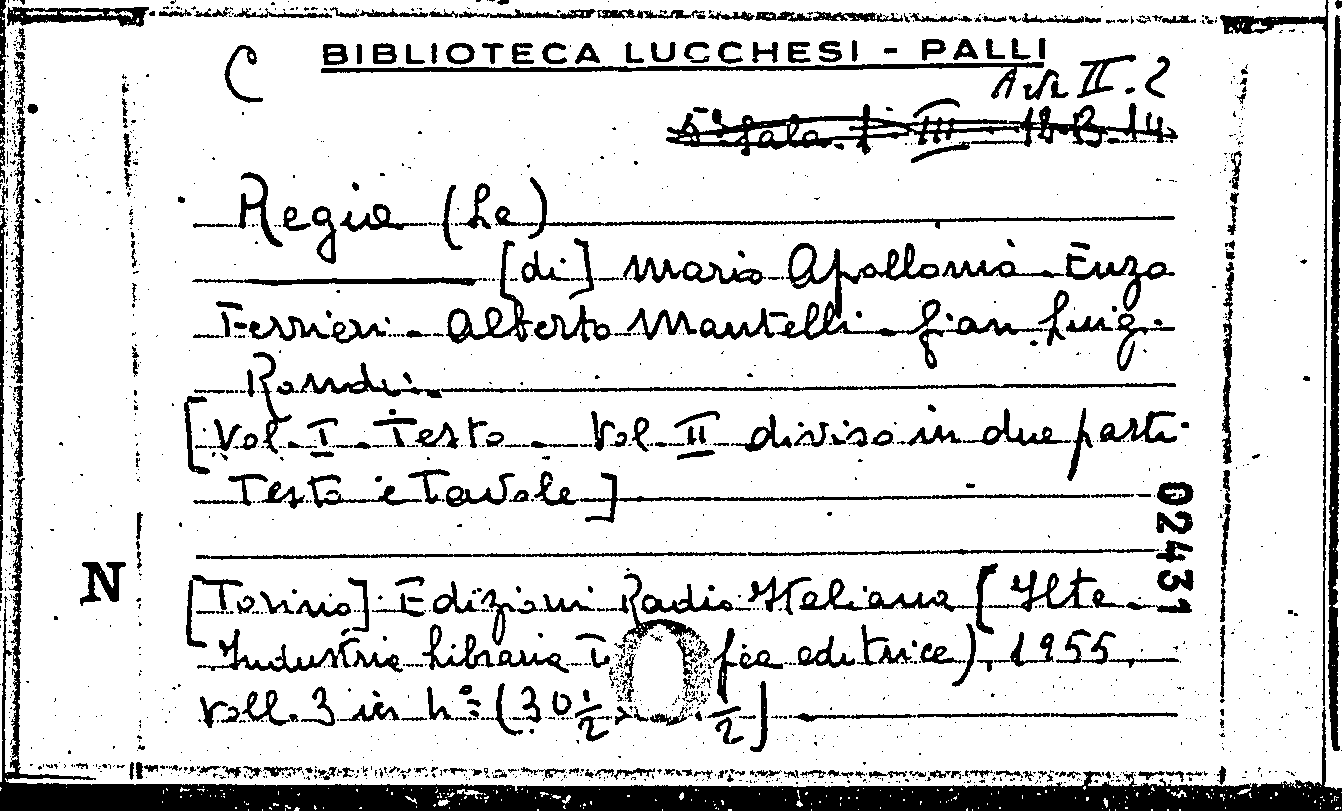 C BIBLIOTECA LUCCHESI - PALLI
II. 2
5ª Sala. 1 - III - 12.B.14
Regia (La)
[di] Mario Apollonio - Enzo
Ferrieri - Alberto Mantelli - Gian Luigi
Rondi.
[Vol. I - Testo - Vol. II diviso in due parti
Testo e Tavole]
02431
N
[Torino] Edizioni Radio Italiana (Ilte -
Industria Libraria fica editrice), 1955,
voll. 3 in 4º (30½ ½]